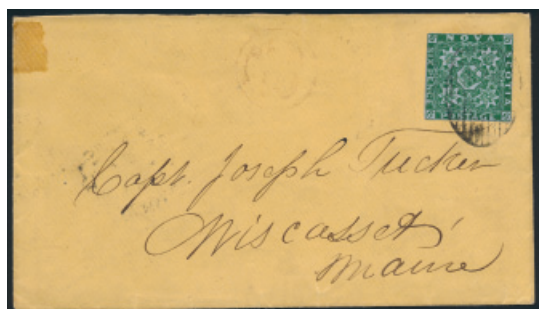 NOVA
SCOTIA
POSTAGE
Capt. Joseph Tucker
Wiscasset,
Maine